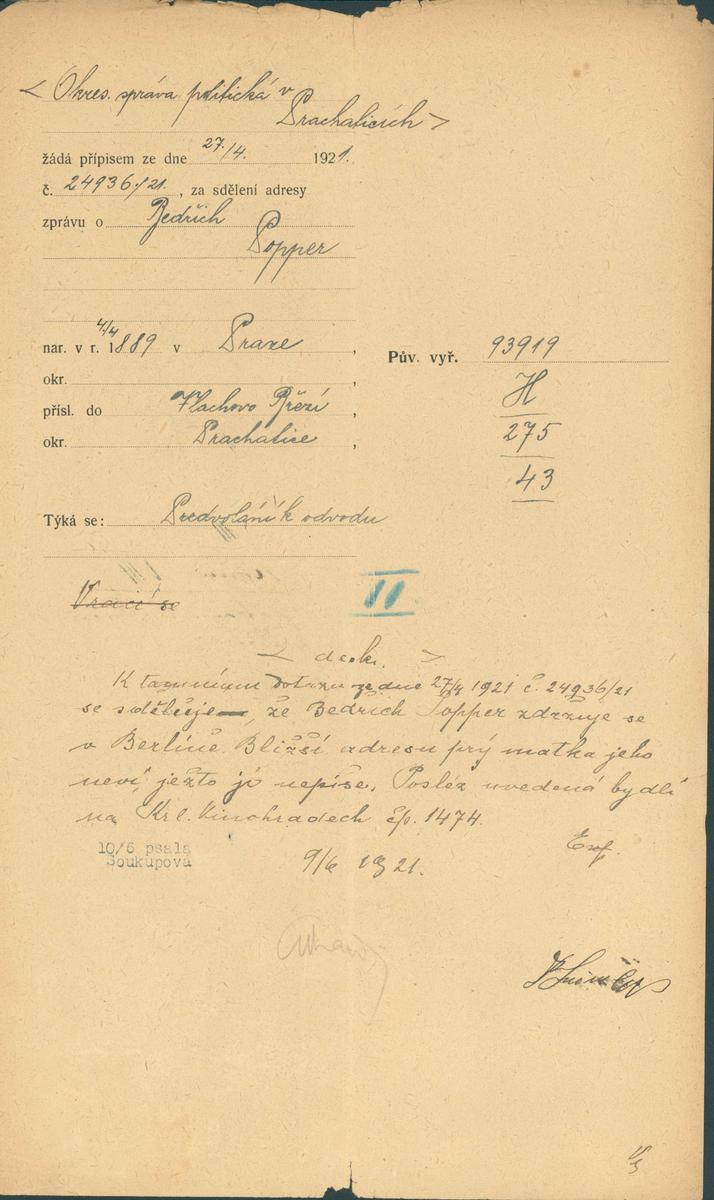 < Okres. správa politická v
Prachaticích >
žádá přípisem ze dne 27./4. 1921.
č. 24936/21., za sdělení adresy
zprávu o Bedřich
Popper
nar. v r. 4/4 1889 v Praze,
okr. ,
Pův. vyř. 93919
přísl. do Vlachovo Březí,
okr. Prachatice,
H
275
43
Týká se: Předvolání k odvodu
Vrací se
II
K tamnímu dotazu ze dne 27/4 1921 č. 24936/21
se sděluje, že Bedřich Popper zdržuje se
v Berlíně. Bližší adresu prý matka jeho
neví, ježto jí nepíše. Posléz uvedená bydlí
na Král. Vinohradech čp. 1474.
10/6 psala
Soukupová
9/6 1921.